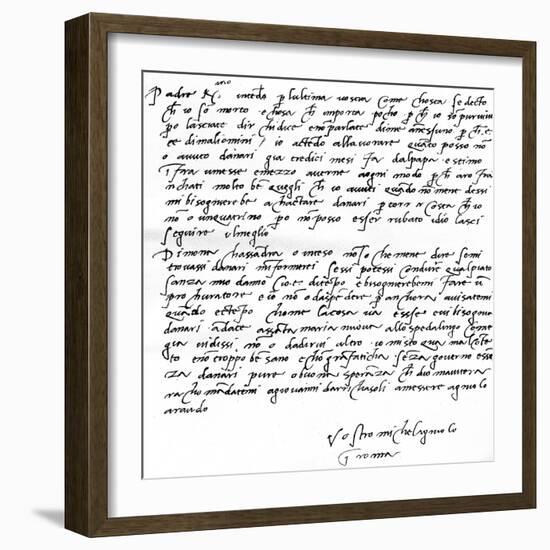 Padre R.mo intēdo p̄ lultima vostra come chosta se decto
ch̄ io sō morto e chosa ch̄ importa pocho p̄ ch̄ io sō pur vivo
p̄o lasciate dir chi dice e nō parlate di me a nessuno p̄ ch̄ e
ce di mali omini io actēdo allavorare quāto posso nō
o avuto danari gia tredici mesi fa dal papa e stimo
ifra ū mese e mezzo averne a ogni modo p̄ ch̄ aro
molto bē quegli ch̄ io o avuti quādo nō me ne dessi
mi bisognierebe achactare danari p̄ tornar costa ch̄ io
nō o un quatrino p̄o nō posso esser rubato idio lasci
seguire il meglio
Di mona chassādra o inteso nō so che me ne dire se mi
trovassi danari minformerei se si potessi condure qua el piato
sanza mio danno cioe di tēpo e bisognierebemi fare ū
prochuratore e io nō o da spēdere p̄ anchora avisatemi
quādo e tēpo chome la cosa va e se e vi bisognia
danari ādate a santa maria nuova allo spedalingo come
gia vi dissi nō o da dirvi altro io mi sto qua mal cōtē
to e nō troppo bē sano e chō grā faticha sēza governo e se
za danari pure o buona speranza ch̄ dio maiutera
rachomādatemi a giovanni da richasoli a messere agniolo
araldo
Vostro michelagniolo
ī roma